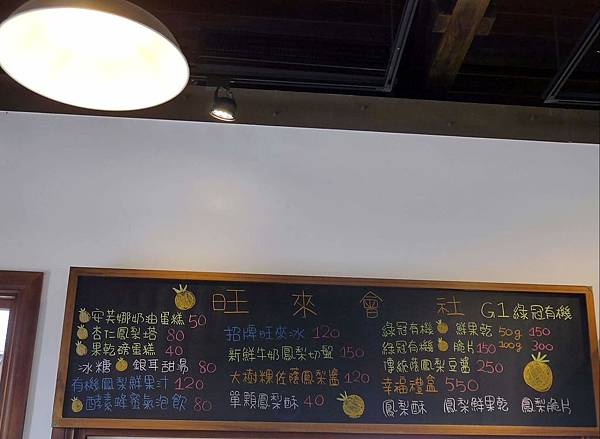 旺來會社 G1綠冠有機
安芙娜奶油蛋糕 50
杏仁鳳梨塔 80
果乾磅蛋糕 40
冰糖 銀耳甜湯 80
有機鳳梨鮮果汁 120
酵素蜂蜜氣泡飲 80
招牌旺來冰 120
新鮮牛奶鳳梨切盤 150
大樹粿佐蔭鳳梨醬 120
單顆鳳梨酥 40
綠冠有機 鮮果乾 50g 150
綠冠有機 脆片150 100g 300
傳統蔭鳳梨豆醬 250
幸福禮盒 550
鳳梨酥 鳳梨鮮果乾 鳳梨脆片